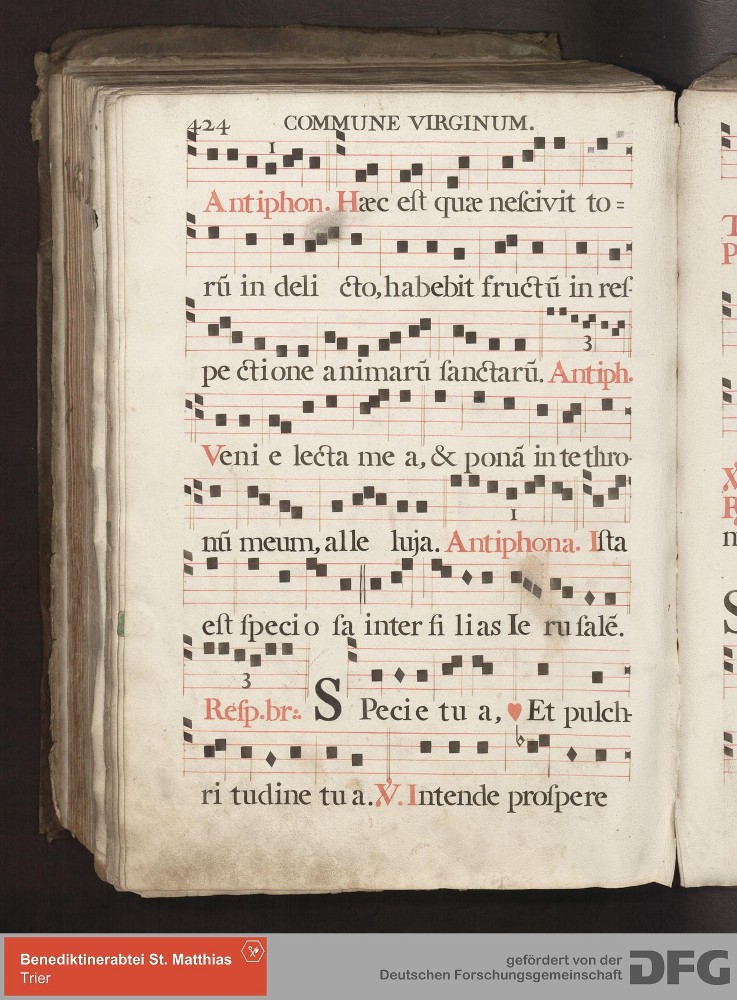 424 COMMUNE VIRGINUM.
1
Antiphon. Hæc eſt quæ neſcivit to=
rū in deli cto, habebit fructū in reſ-
3
pe ctione animarū ſanctarū. Antiph.
Veni e lecta me a, & ponā in te thro-
1
nū meum, alle luja. Antiphona. Iſta
eſt ſpecio ſa inter fi lias Ie ruſalē.
3
Reſp.br:. S Pecie tu a, ♥ Et pulch-
ri tudine tu a. ℣. Intende proſpere
T
P
℣
R
n
S
Benediktinerabtei St. Matthias
Trier
gefördert von der
Deutschen Forschungsgemeinschaft DFG